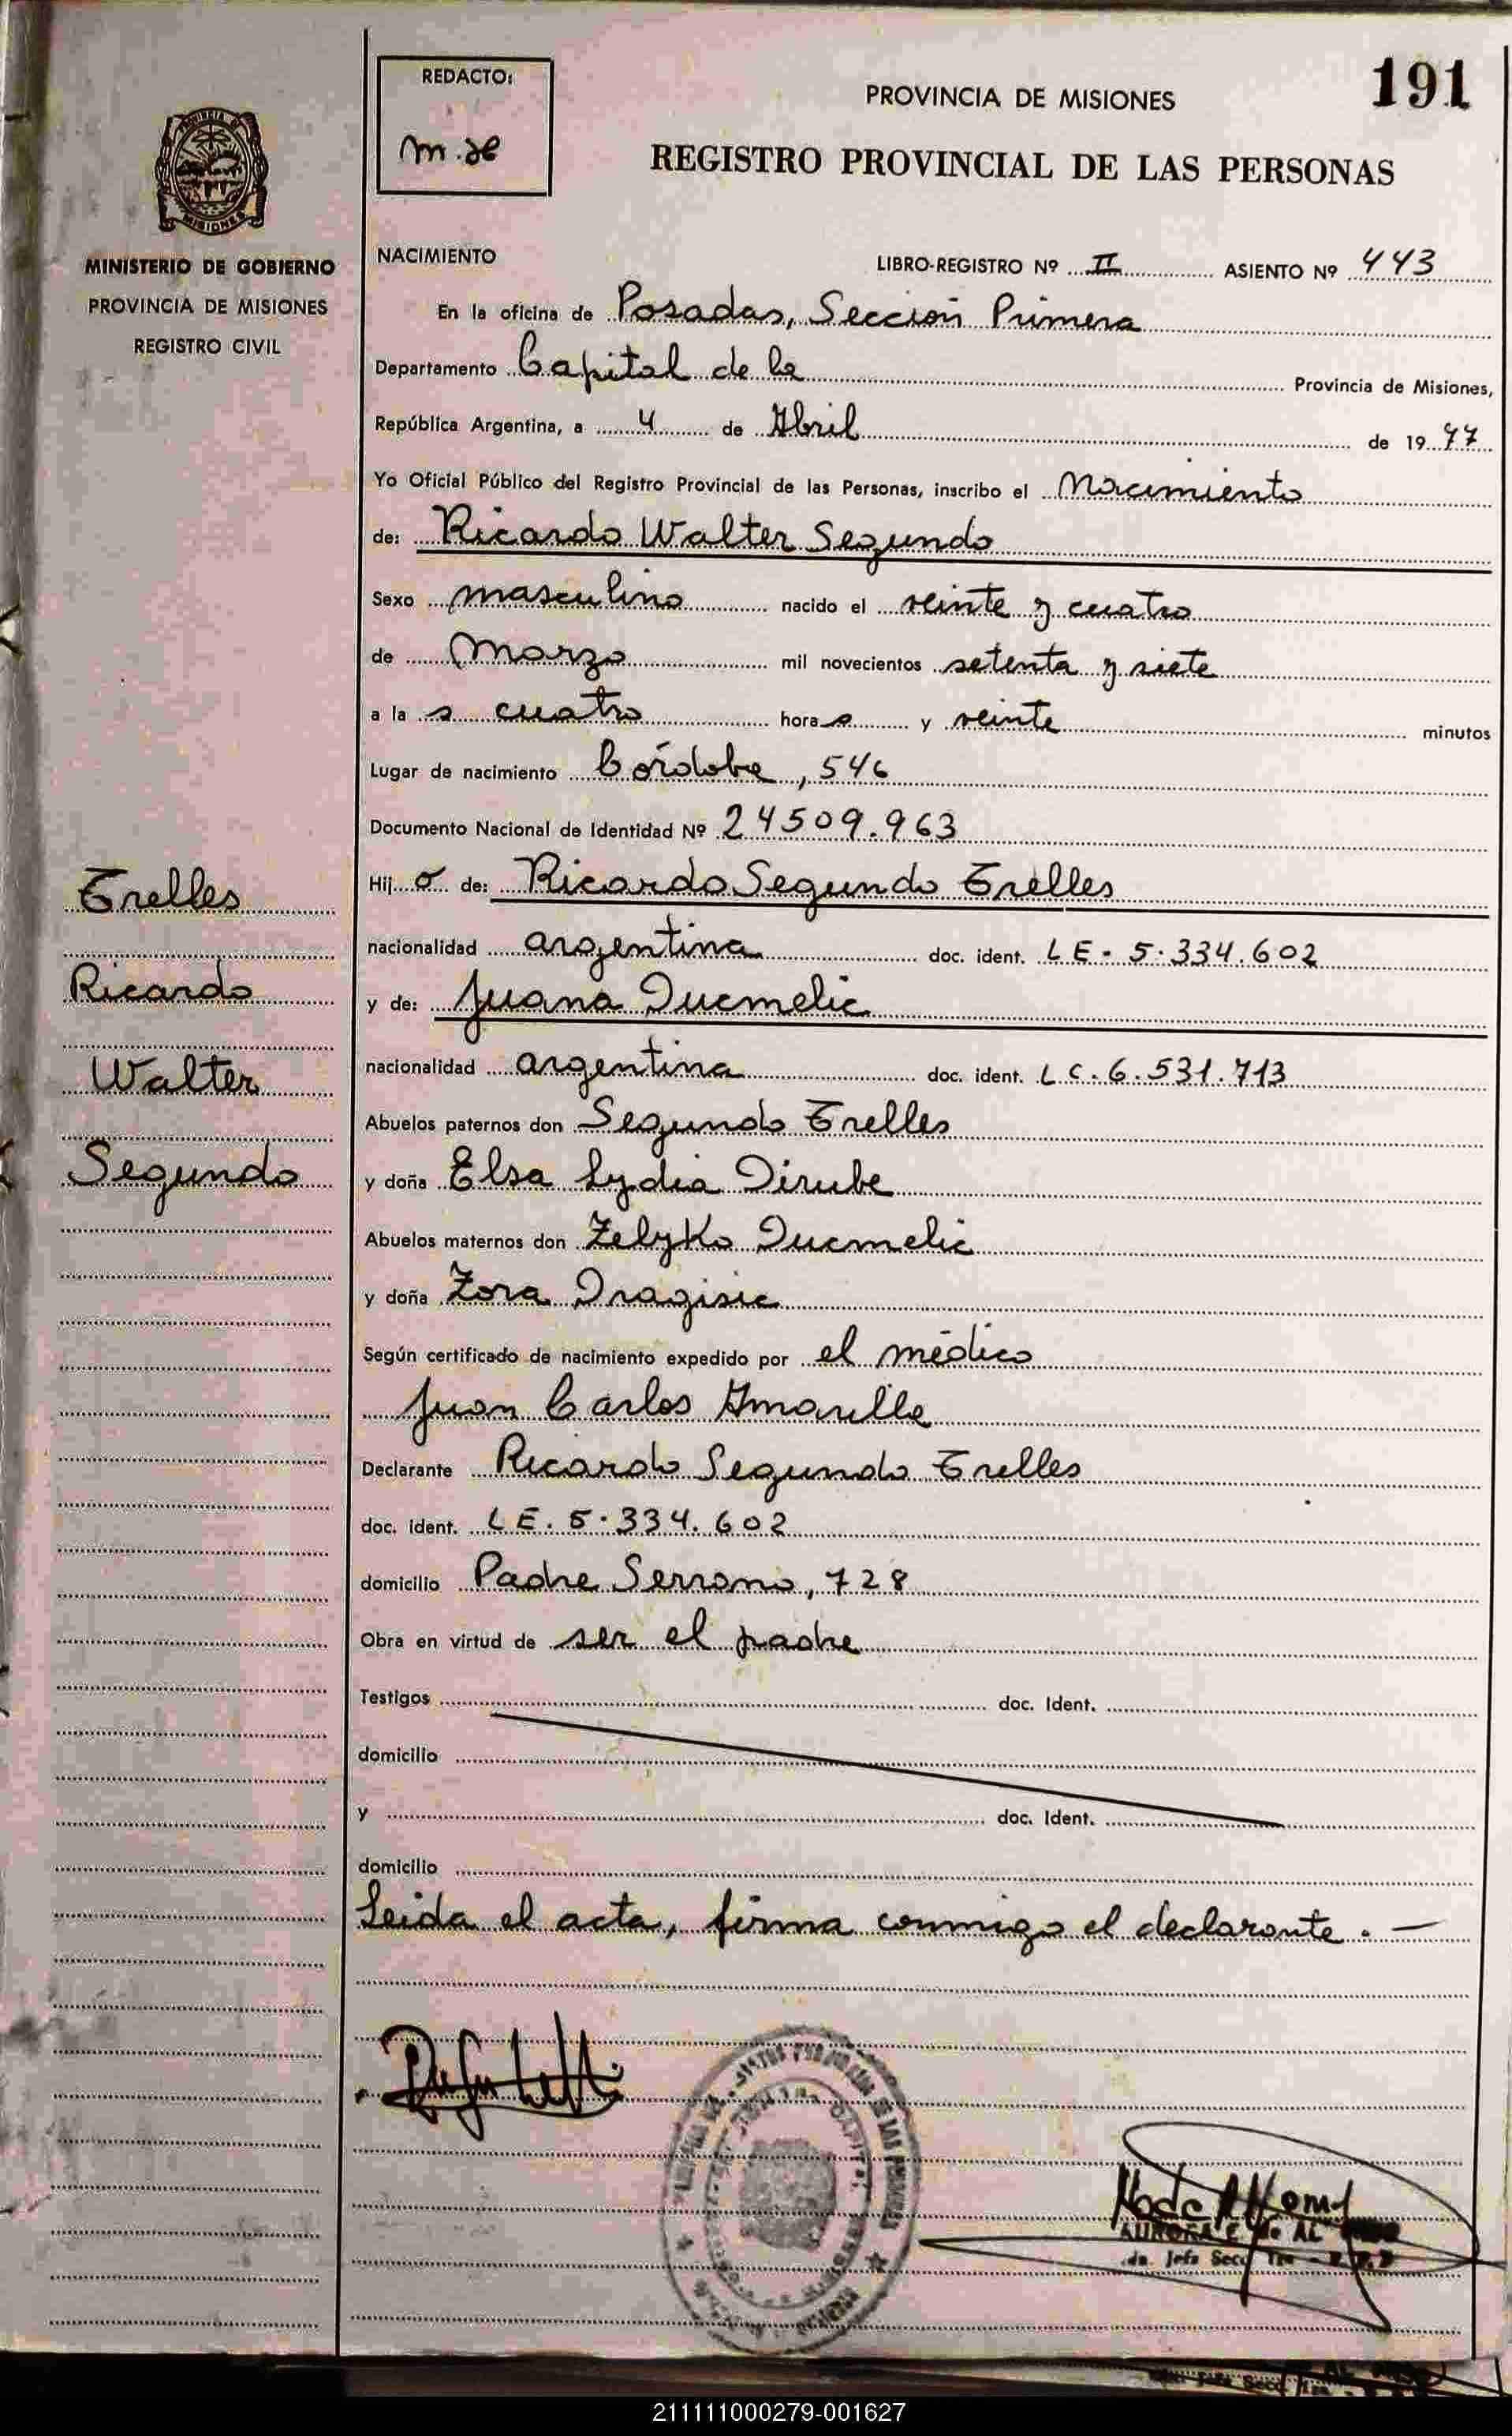 191
REDACTO:
PROVINCIA DE MISIONES
REGISTRO PROVINCIAL DE LAS PERSONAS
PROVINCIA DE
MISIONES
MINISTERIO DE GOBIERNO
PROVINCIA DE MISIONES
REGISTRO CIVIL
NACIMIENTO LIBRO-REGISTRO Nº II ASIENTO Nº 443
En la oficina de Posadas, Sección Primera
Departamento Capital de la Provincia de Misiones,
República Argentina, a 4 de Abril de 1977
Yo Oficial Público del Registro Provincial de las Personas, inscribo el Nacimiento
de: Ricardo Walter Segundo
Sexo masculino nacido el veinte y cuatro
de Marzo mil novecientos setenta y siete
a la s cuatro hora s y veinte minutos
Lugar de nacimiento Córdoba, 546
Documento Nacional de Identidad Nº 24509.963
Hij o de: Ricardo Segundo Trelles
nacionalidad argentina doc. ident. LE. 5.334.602
y de: Juana Ducmelic
nacionalidad argentina doc. ident. LC. 6.531.713
Abuelos paternos don Segundo Trelles
y doña Elsa Lydia Dirube
Abuelos maternos don Zelyko Ducmelic
y doña Zora Dragisic
Según certificado de nacimiento expedido por el médico
Juan Carlos Amarilla
Declarante Ricardo Segundo Trelles
doc. ident. LE. 5.334.602
domicilio Padre Serrano, 728
Obra en virtud de ser el padre
Testigos doc. Ident.
domicilio
y doc. Ident.
domicilio
Leida el acta, firma conmigo el declarante. —
Trelles
Ricardo
Walter
Segundo
AURORA E. de AL
Jefa Secc
211111000279-001627